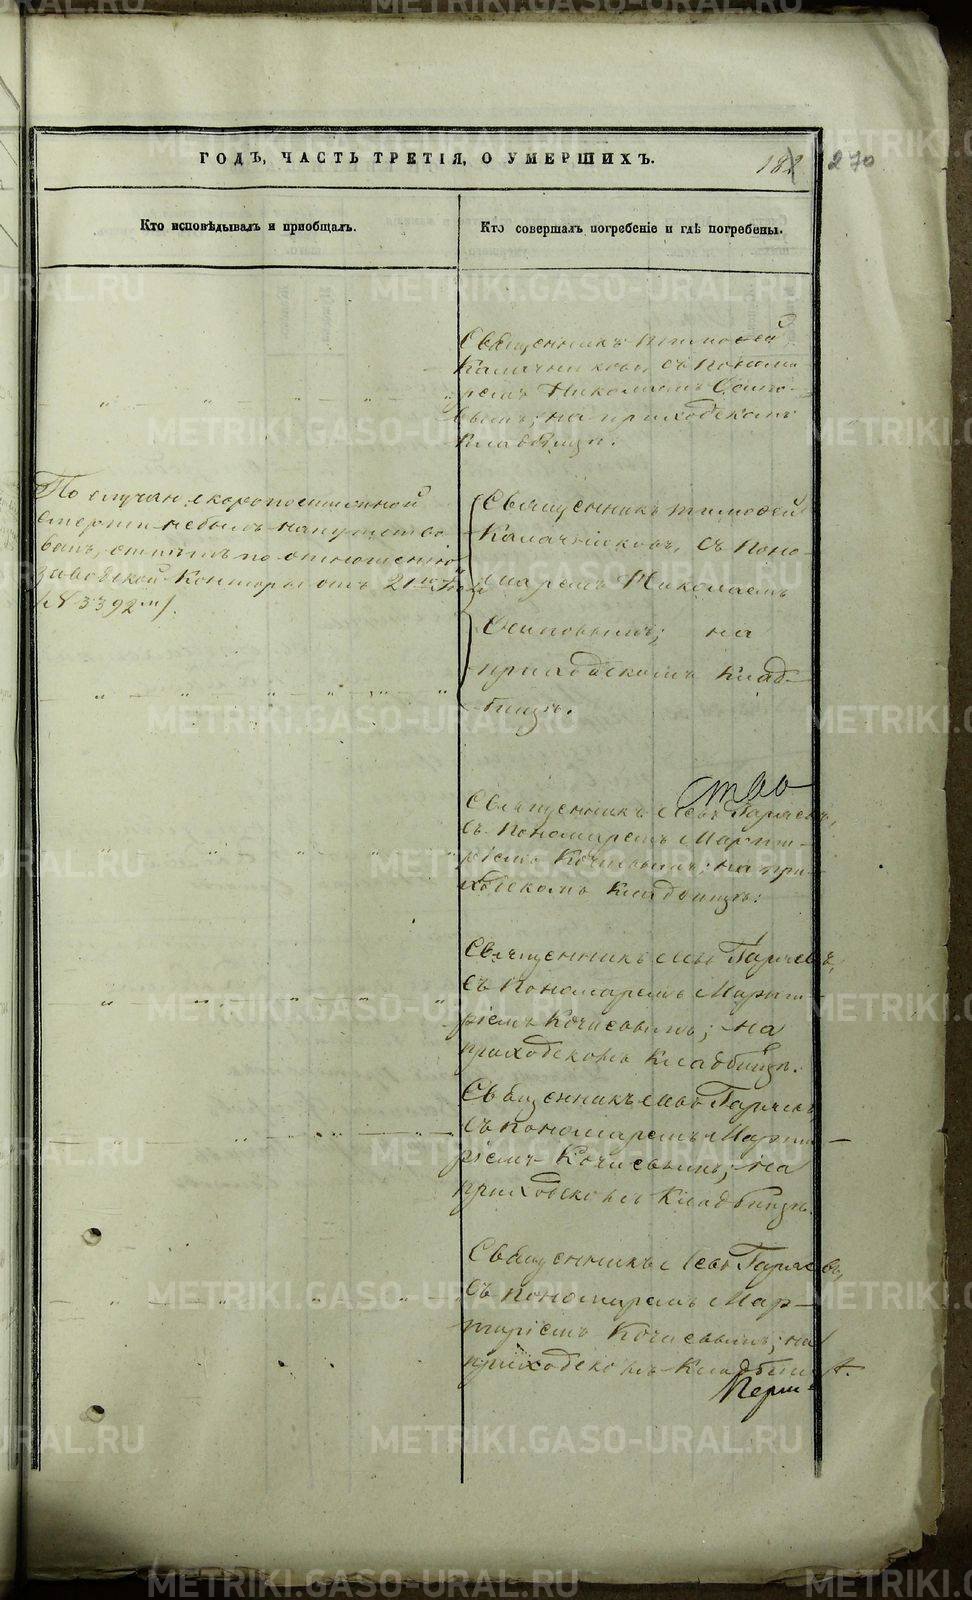 ГОДЪ, ЧАСТЬ ТРЕТІЯ, О УМЕРШИХЪ.
182 270
Кто исповѣдывалъ и пріобщалъ.
Кто совершалъ погребеніе и гдѣ погребены.
Священникъ Тимофей
Калачниковъ, съ Понома-
ремъ Николаемъ Осипо-
вымъ; на приходскомъ
кладбищѣ.
По случаю скоропостижной
смерти не былъ напутство
ванъ, отпѣтъ по отношенію
Заводской Конторы отъ 21го
№ 3392м/.
Священникъ Тимофей
Калачниковъ, съ Поно-
маремъ Николаемъ
Осиповымъ; на
приходскомъ клад-
бищѣ.
Священникъ Левъ Гаряевъ,
съ Пономаремъ Марти-
ріемъ Кочневымъ; на при-
ходскомъ кладбищѣ.
Священникъ Левъ Гаряевъ,
съ Пономаремъ Марти-
ріемъ Кочневымъ; на
приходскомъ кладбищѣ.
Священникъ Левъ Гаряевъ,
съ пономаремъ Марти-
ріемъ Кочневымъ; на
приходскомъ кладбищѣ.
Священникъ Левъ Гаряевъ,
съ пономаремъ Мар-
тиріемъ Кочневымъ; на
приходскомъ кладбищѣ.
METRIKI.GASO-URAL.RU